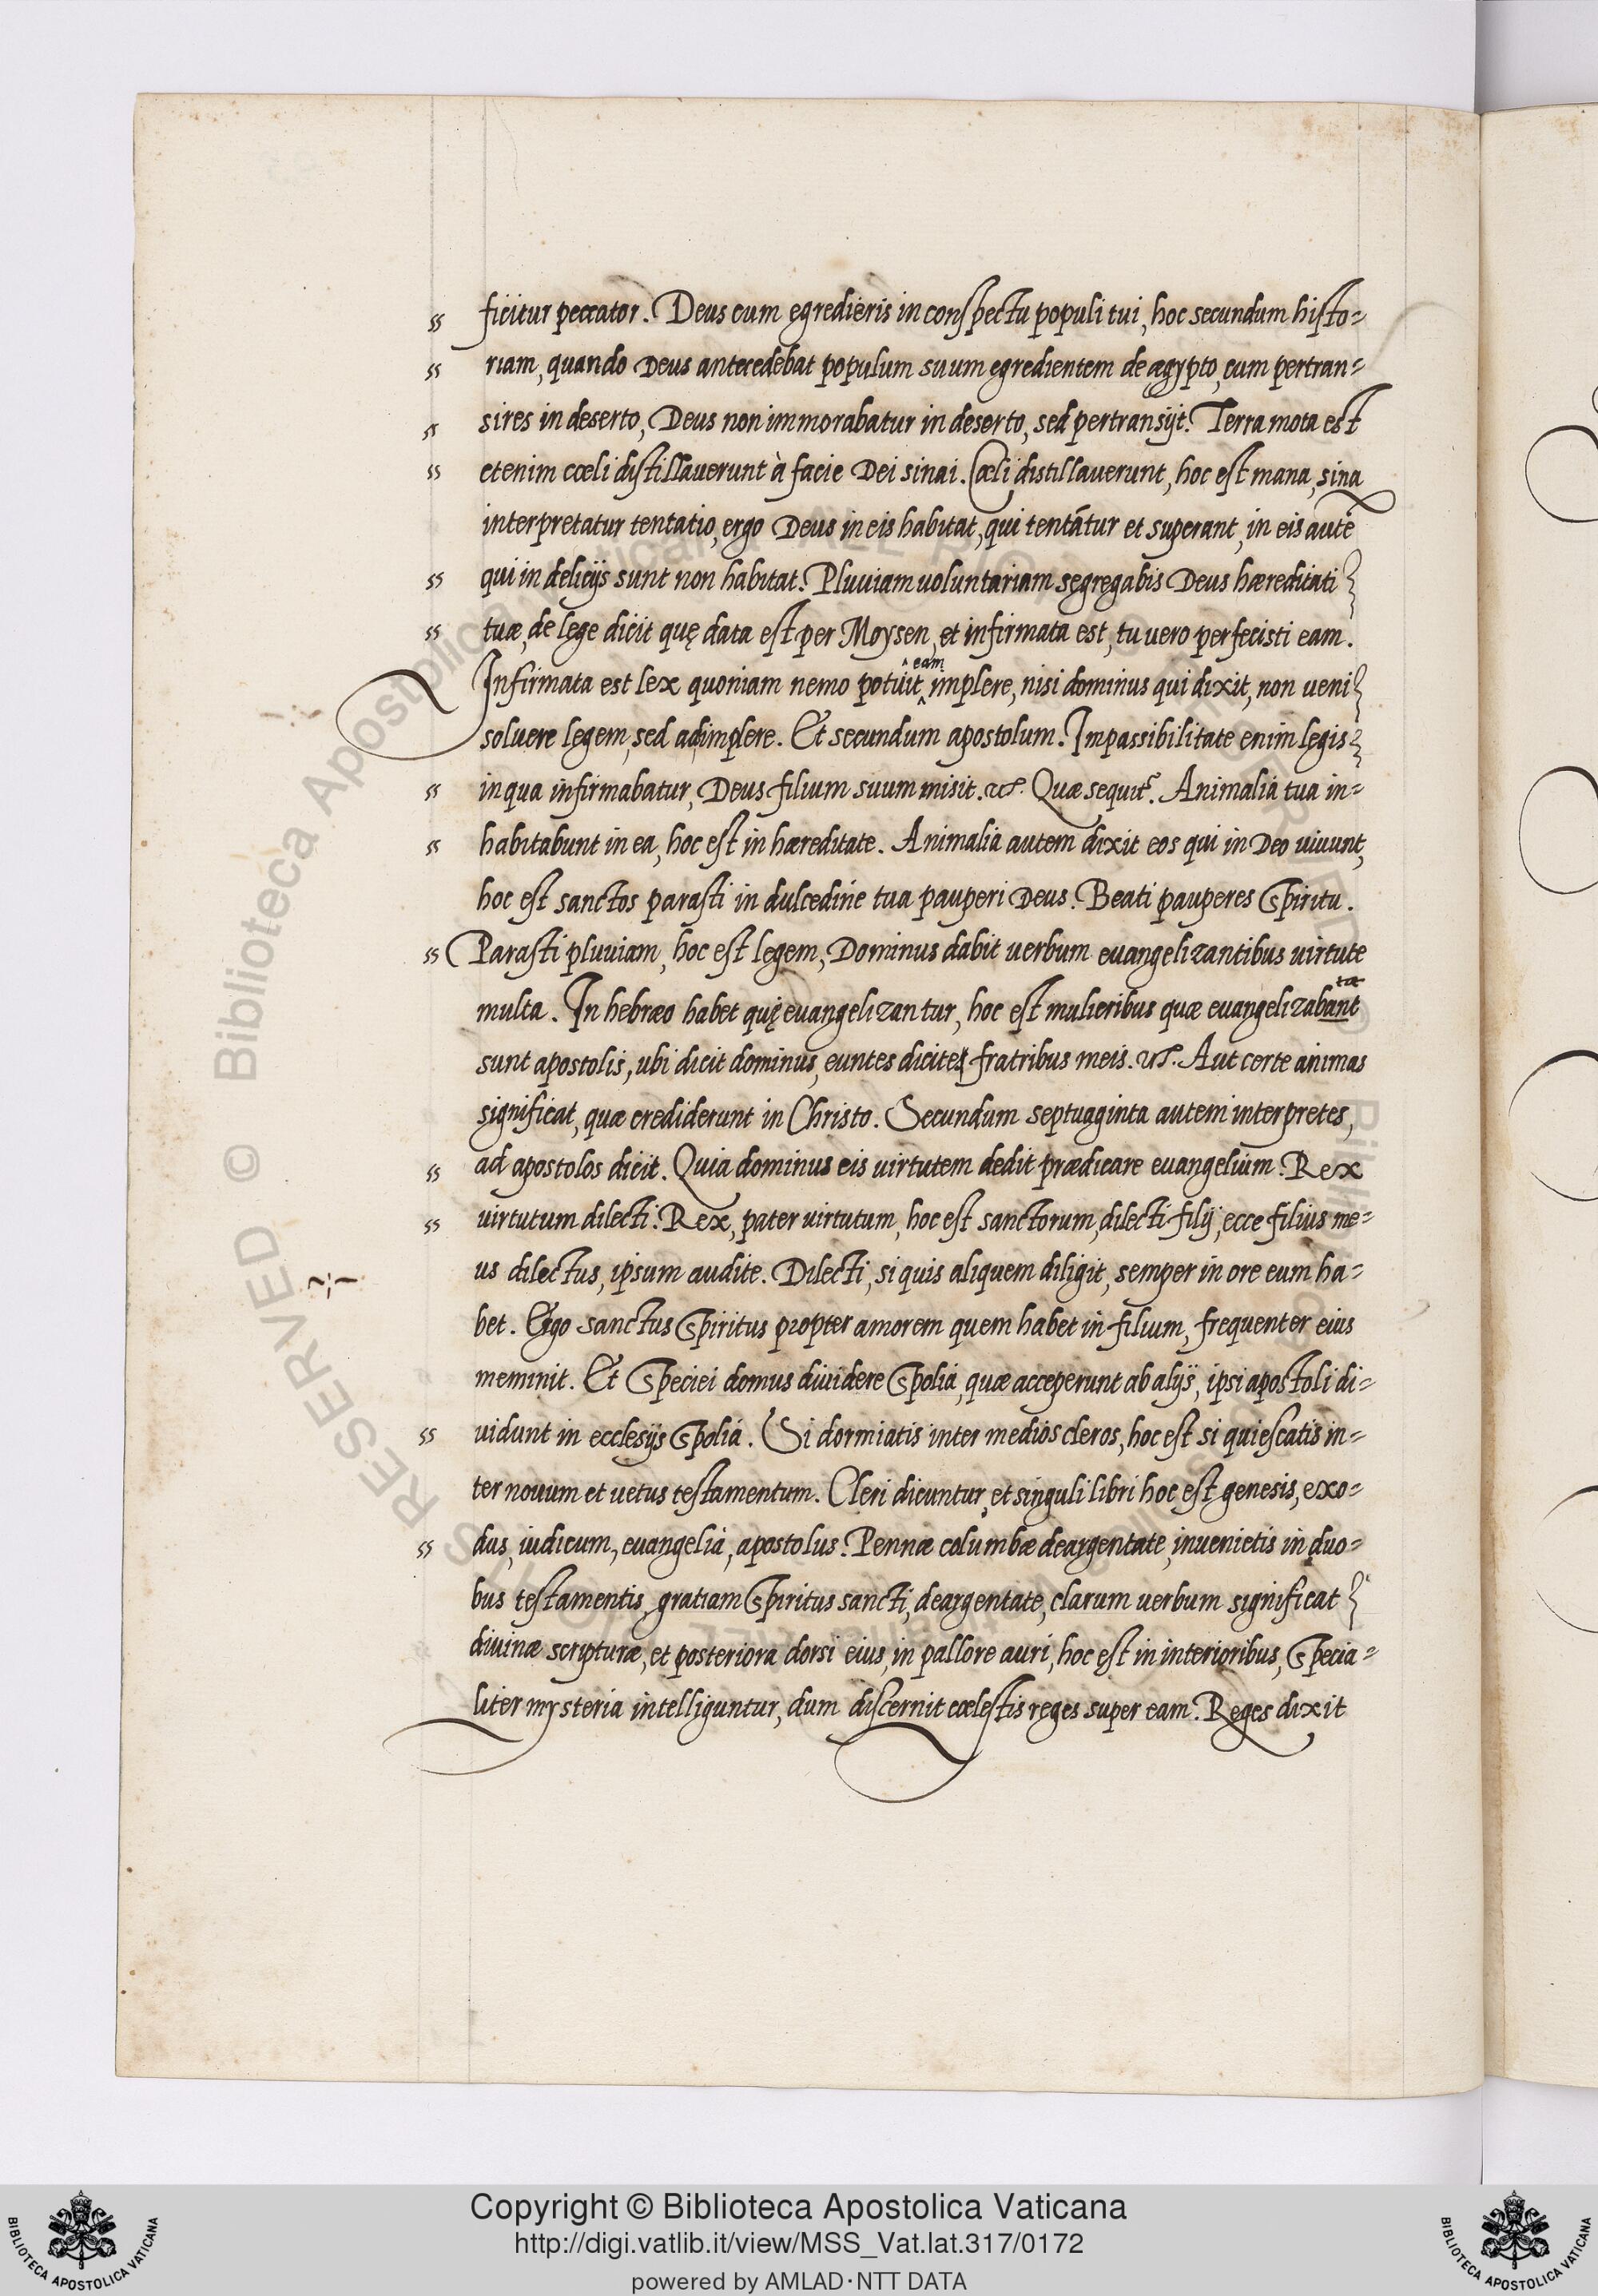 ficitur peccator. Deus cum egredieris in conspectu populi tui, hoc secundum histo=
riam, quando Deus antecedebat populum suum egredientem de ægypto, cum pertran=
sires in deserto, Deus non immorabatur in deserto, sed pertransijt. Terra mota est
etenim cœli distillauerunt à facie Dei sinai. Cœli distillauerunt, hoc est mana, sina
interpretatur tentatio, ergo Deus in eis habitat, qui tentātur et superant, in eis autē
qui in delicijs sunt non habitat. Pluuiam uoluntariam segregabis Deus hæreditati
tuæ, de lege dicit quę data est per Moysen, et infirmata est, tu uero perfecisti eam.
Infirmata est lex quoniam nemo potuit eam implere, nisi dominus qui dixit, non ueni
soluere legem, sed adimplere. Et secundum apostolum. Impassibilitate enim legis
in qua infirmabatur, Deus filium suum misit. &c. Quæ sequit̃. Animalia tua in=
habitabunt in ea, hoc est in hæreditate. Animalia autem dixit eos qui in Deo uiuunt,
hoc est sanctos parasti in dulcedine tua pauperi Deus. Beati pauperes spiritu.
Parasti pluuiam, hoc est legem, Dominus dabit uerbum euangelizantibus uirtute
multa. In hebræo habet quę euangelizantur, hoc est mulieribus quæ euangelizabant
tæ
sunt apostolis, ubi dicit dominus, euntes dicite fratribus meis. &c. Aut certe animas
significat, quæ crediderunt in Christo. Secundum septuaginta autem interpretes,
ad apostolos dicit. Quia dominus eis uirtutem dedit prædicare euangelium. Rex
uirtutum dilecti. Rex, pater uirtutum, hoc est sanctorum, dilecti filij, ecce filius me=
us dilectus, ipsum audite. Dilecti, si quis aliquem diligit, semper in ore eum ha=
bet. Ergo sanctus spiritus propter amorem quem habet in filium, frequenter eius
meminit. Et speciei domus diuidere spolia, quæ acceperunt ab alijs, ipsi apostoli di=
uidunt in ecclesijs spolia. Si dormiatis inter medios cleros, hoc est si quiescatis in=
ter nouum et uetus testamentum. Cleri dicuntur, et singuli libri hoc est genesis, exo=
dus, iudicum, euangelia, apostolus. Pennæ columbæ deargentate, inuenietis in duo=
bus testamentis, gratiam spiritus sancti, deargentate, clarum uerbum significat
diuinæ scripturæ, et posteriora dorsi eius, in pallore auri, hoc est in interioribus, specia=
liter mysteria intelliguntur, dum discernit cœlestis reges super eam. Reges dixit
© Biblioteca Apostolica Vaticana
ALL RIGHTS RESERVED
Copyright © Biblioteca Apostolica Vaticana
http://digi.vatlib.it/view/MSS_Vat.lat.317/0172
powered by AMLAD·NTT DATA
BIBLIOTECA APOSTOLICA VATICANA
BIBLIOTECA APOSTOLICA VATICANA